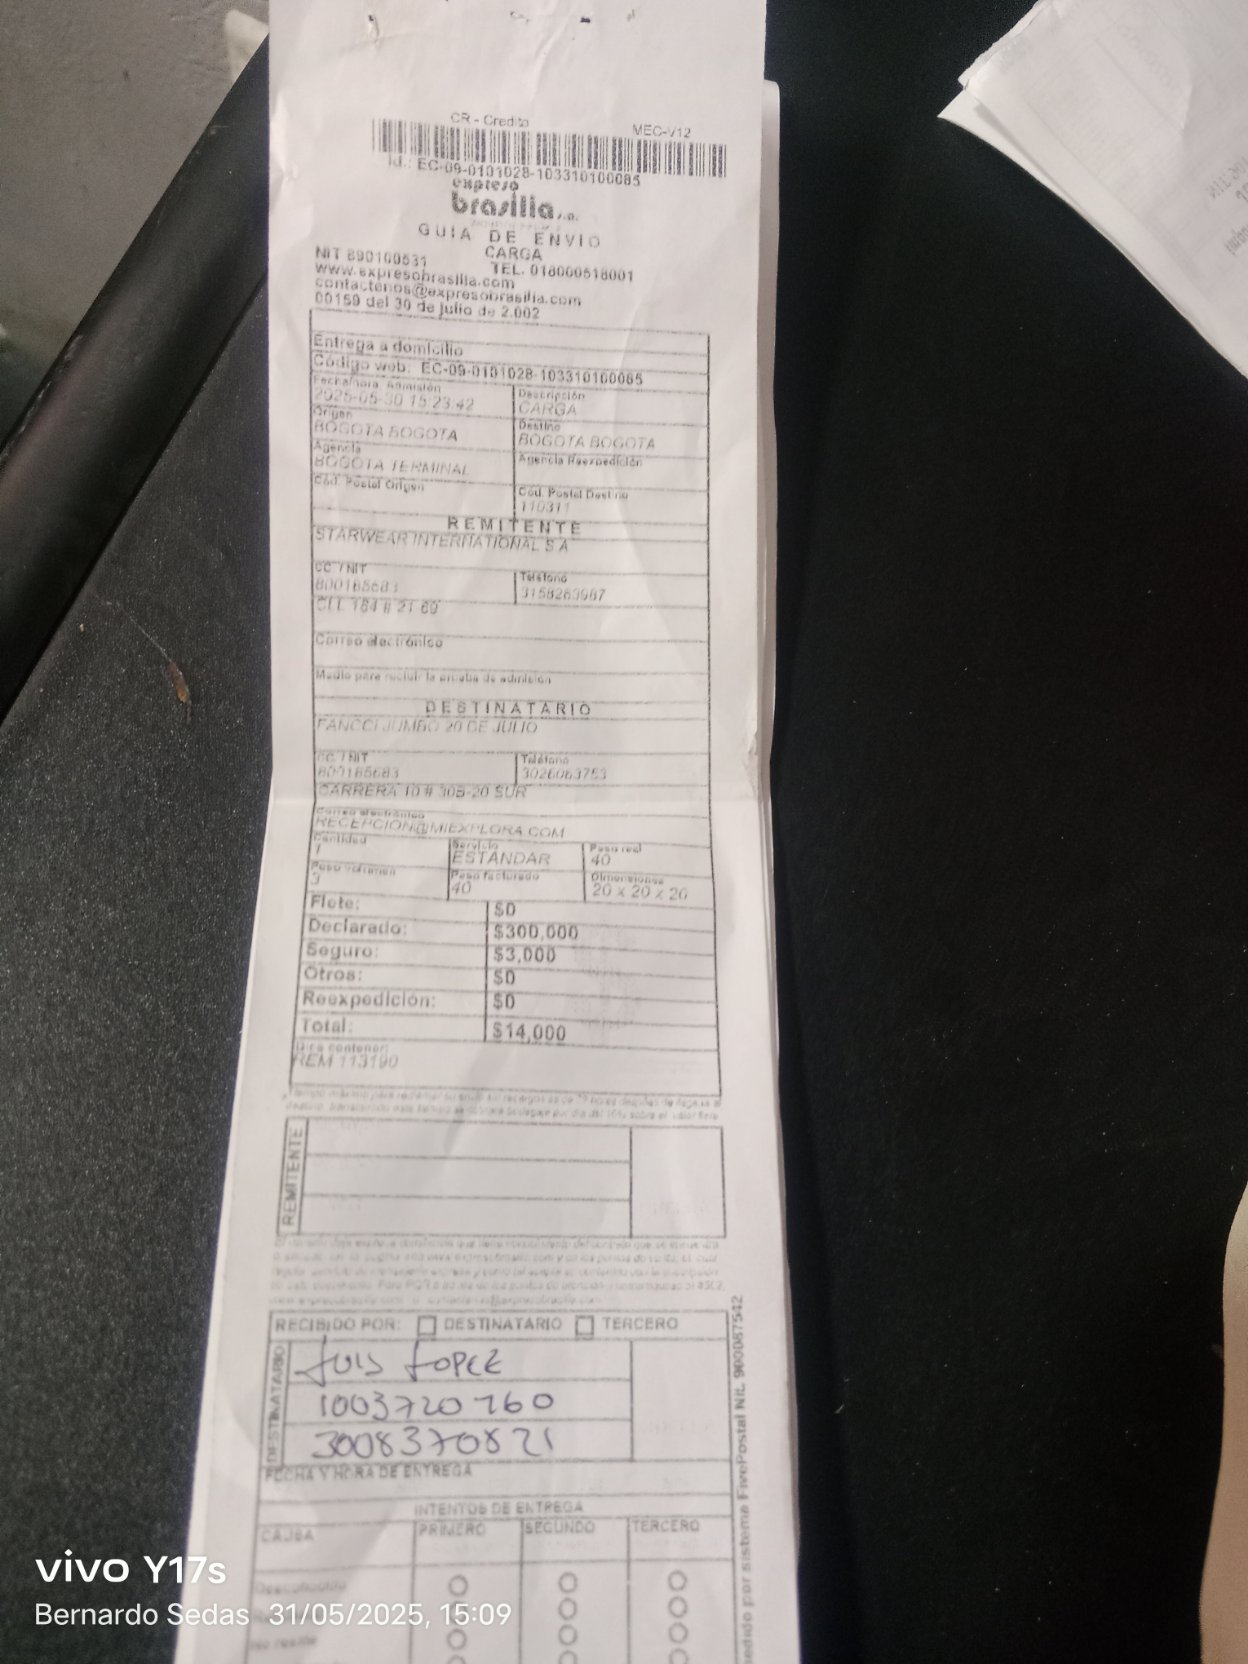 CR - Credito
MEC-V12
Id.: EC-09-0101028-103310100085
expreso
brasilia s.a.
GUIA DE ENVIO
CARGA
NIT 890100531
TEL. 018000518001
www.expresobrasilia.com
contactenos@expresobrasilia.com
00159 del 30 de julio de 2.002
Entrega a domicilio
Código web: EC-09-0101028-103310100085
Fecha/hora Admisión
2025-05-30 15:23:42
Descripción
CARGA
Origen
BOGOTA BOGOTA
Destino
BOGOTA BOGOTA
Agencia
BOGOTA TERMINAL
Agencia Reexpedición
Cód. Postal Origen
Cód. Postal Destino
110311
REMITENTE
STARWEAR INTERNATIONAL S A
CC / NIT
800165683
Teléfono
3158263967
CLL 164 # 21 69
Correo electrónico
Medio para recibir la prueba de admisión
DESTINATARIO
FANCCI JUMBO 20 DE JULIO
CC / NIT
800165683
Teléfono
3026063753
CARRERA 10 # 30B-20 SUR
Correo electrónico
RECEPCION@MIEXPLORA.COM
Cantidad
1
Servicio
ESTANDAR
Peso real
40
Peso volumen
3
Peso facturado
40
Dimensiones
20 x 20 x 20
Flete: $0
Declarado: $300,000
Seguro: $3,000
Otros: $0
Reexpedición: $0
Total: $14,000
Dice contener:
REM 113190
REMITENTE
RECIBIDO POR: DESTINATARIO TERCERO
DESTINATARIO
LUIS LOPEZ
1003720760
3008370821
FECHA Y HORA DE ENTREGA
INTENTOS DE ENTREGA
CAUSA PRIMERO SEGUNDO TERCERO
Desconocido
No reside
edido por sistema FivePostal Nit. 900087542
vivo Y17s
Bernardo Sedas 31/05/2025, 15:09